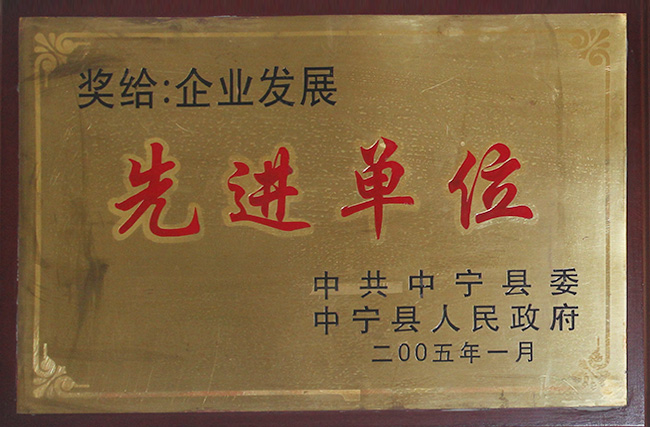 奖给:企业发展
先进单位
中共中宁县委
中宁县人民政府
二00五年一月